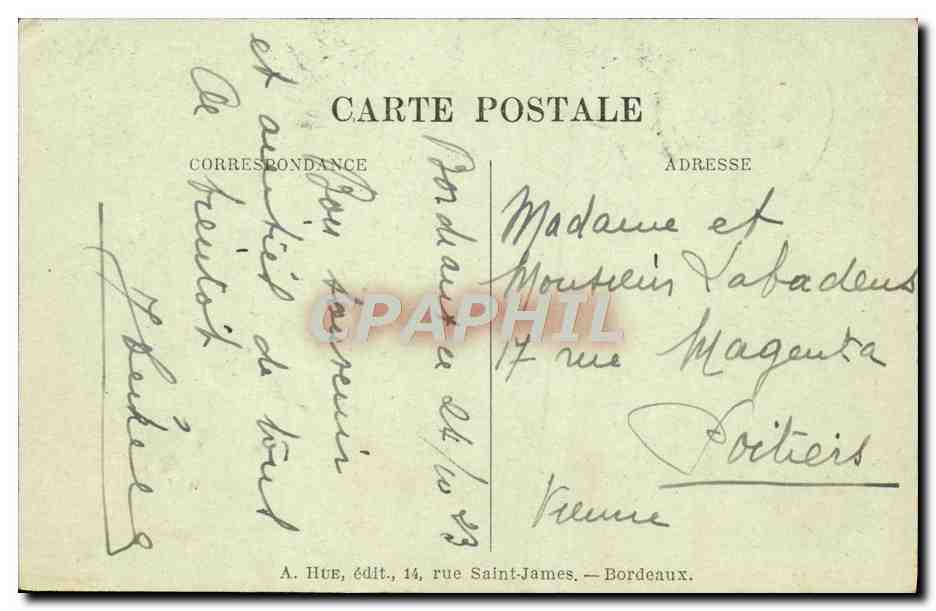 CARTE POSTALE
CORRESPONDANCE
ADRESSE
Bordeaux ce 24/10 23
Bon souvenir
et amitiés de tous
A bientôt
Madame et
Monsieur Labadens
17 rue Magenta
Poitiers
Vienne
CPAPHIL
A. HUE, édit., 14, rue Saint-James. — Bordeaux.